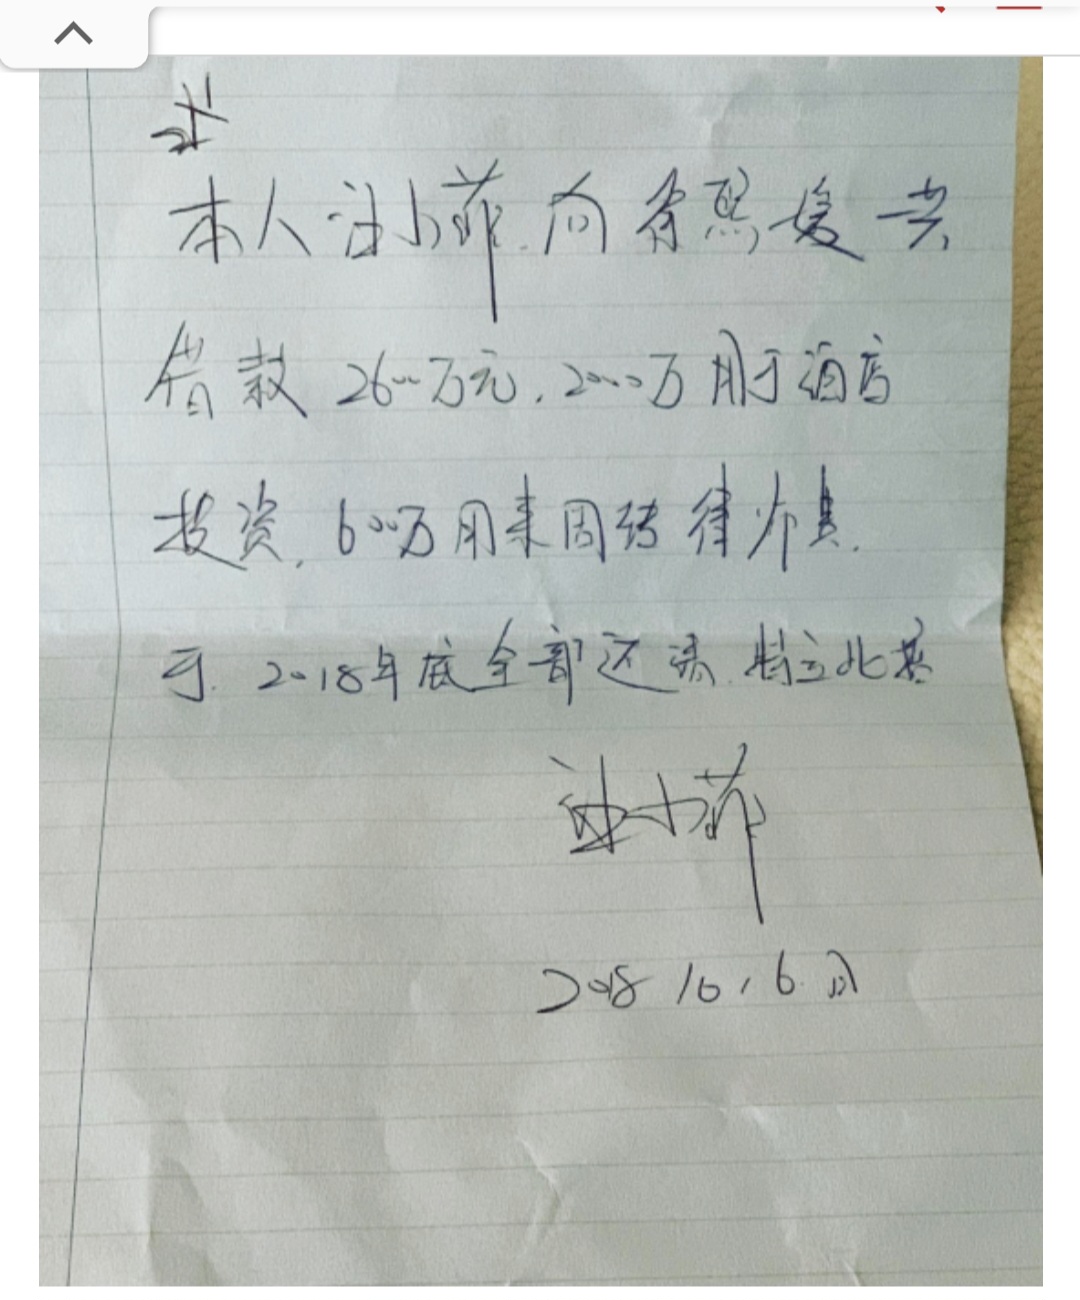 本人汪小菲向徐熙媛共
借款2600万元.2000万用于酒店
投资,600万用来周转律师费.
于.2018年底全部还清.特立此据
汪小菲
2018 10,6日